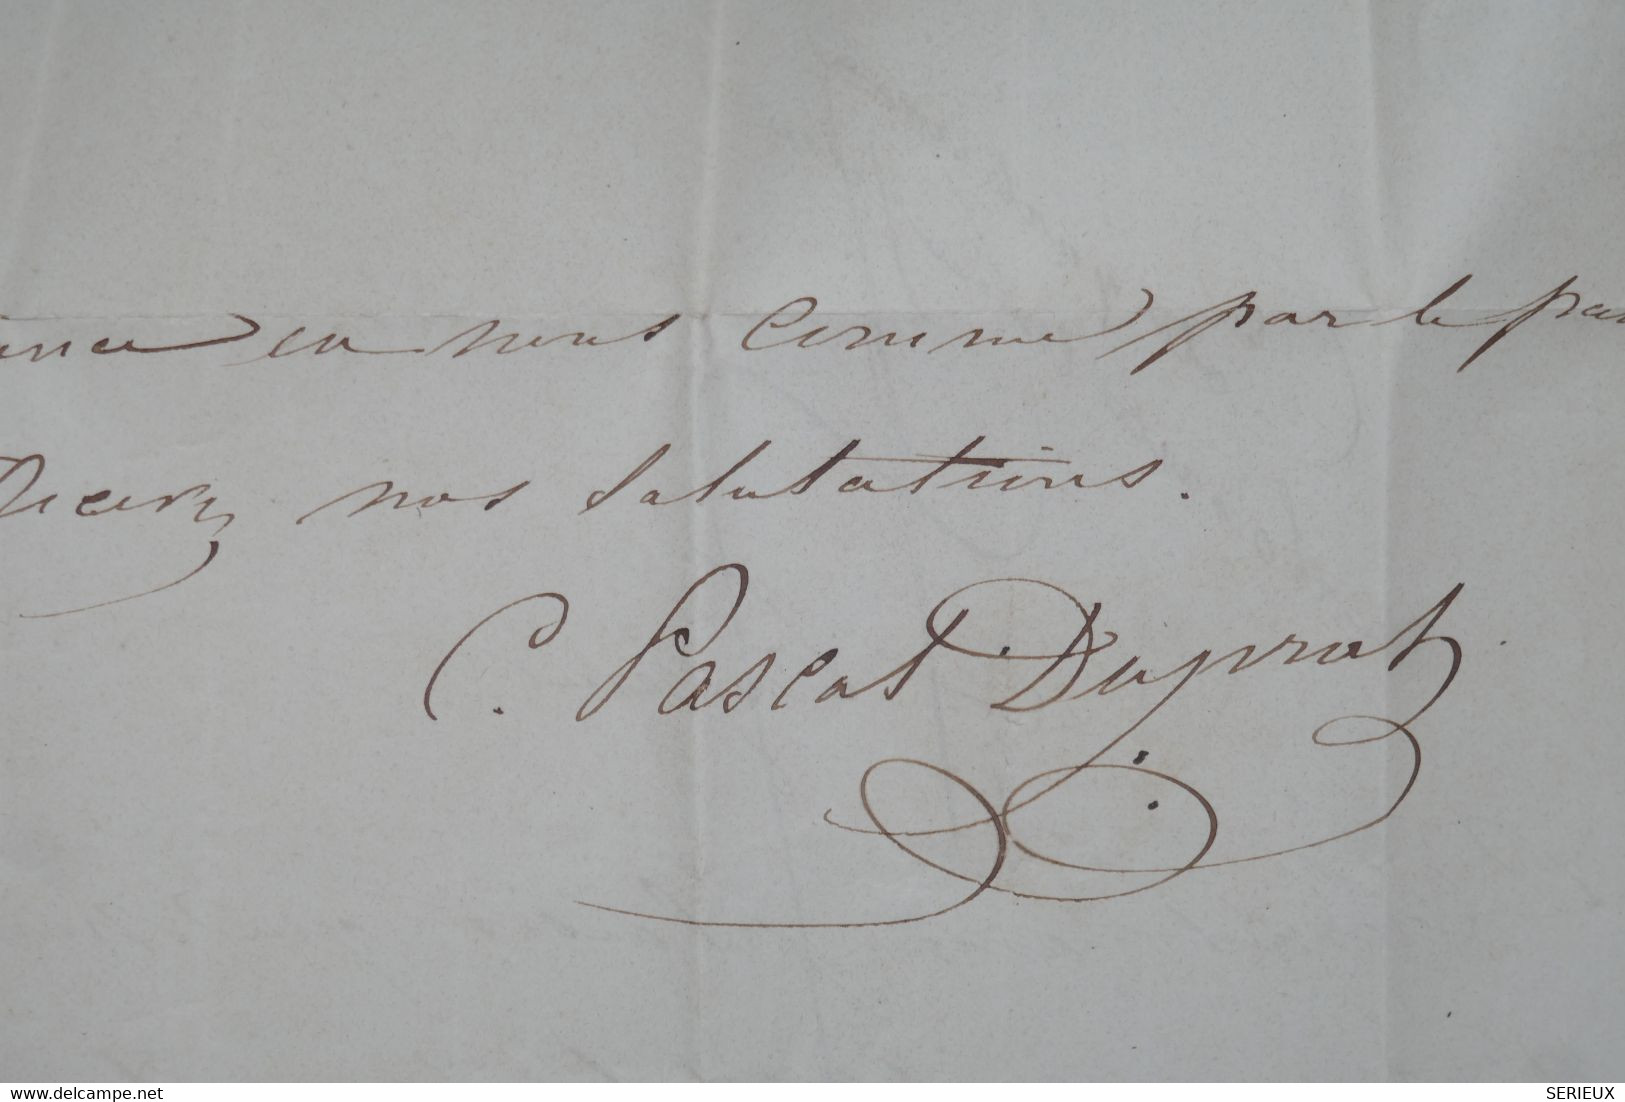 en nous comme par le pas
Recevez nos salutations.
C. Pascal Duprat
www.delcampe.net
SERIEUX